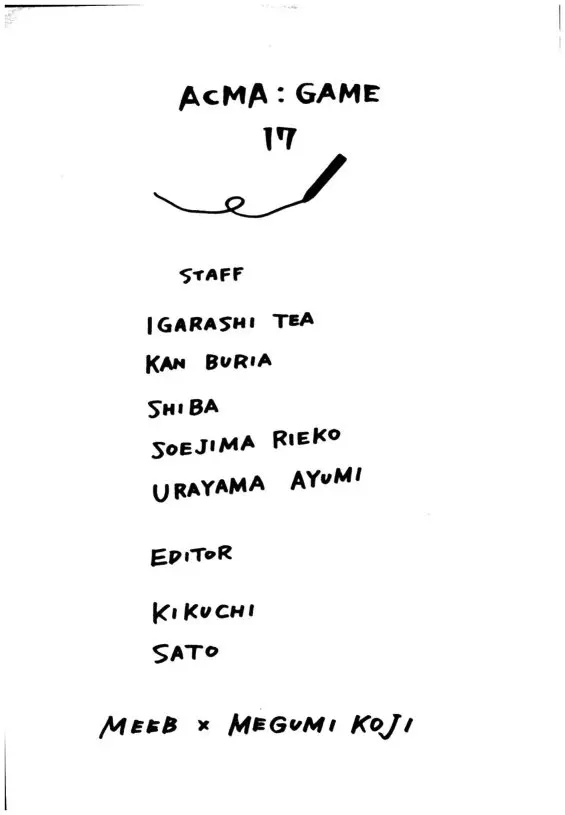 ACMA: GAME
17
STAFF
IGARASHI TEA
KAN BURIA
SHIBA
SOEJIMA RIEKO
URAYAMA AYUMI
EDITOR
KIKUCHI
SATO
MEEB × MEGUMI KOJI